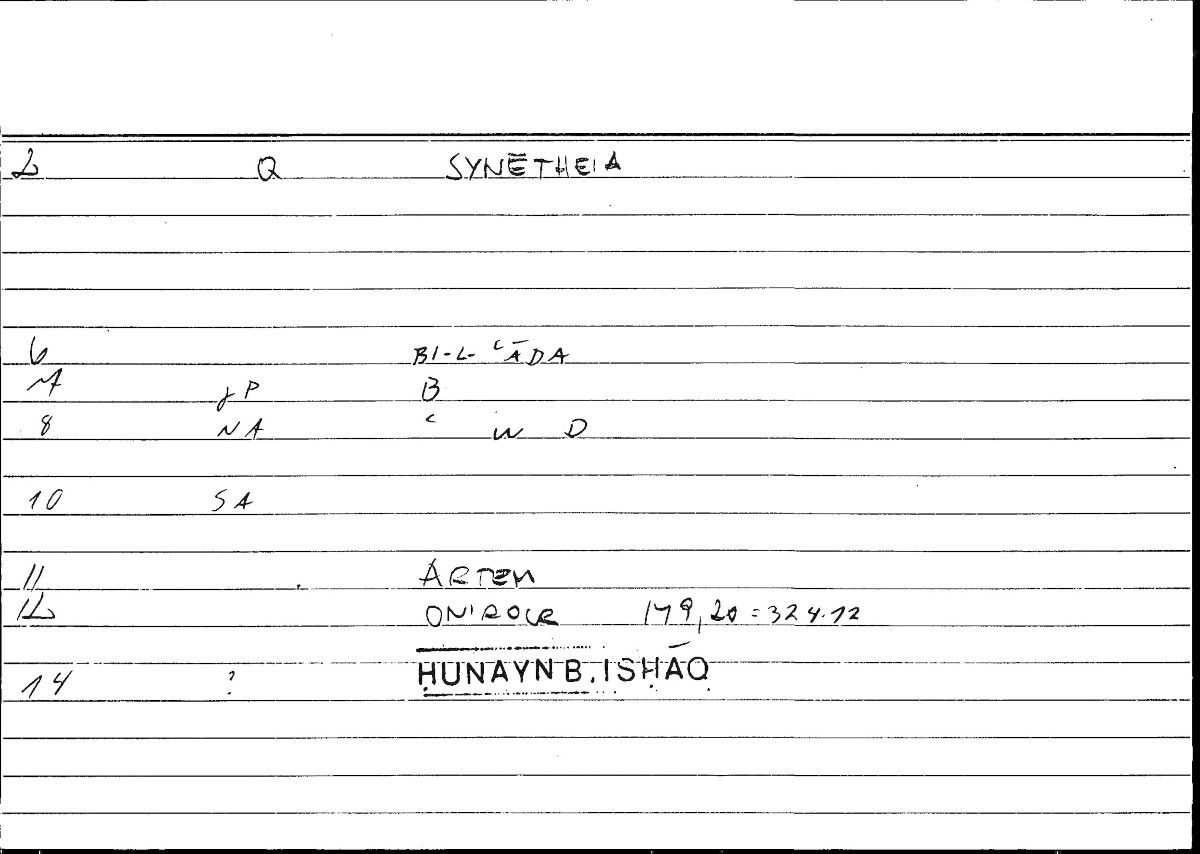 2 Q SYNĒTHEIA
6 BI-L-ʿĀDA
7 JP B
8 NA ʿ W D
10 SA
11 ARTEM
12 ONIROCR 179,20=324.12
14 ? ḤUNAYN B. ISḤĀQ